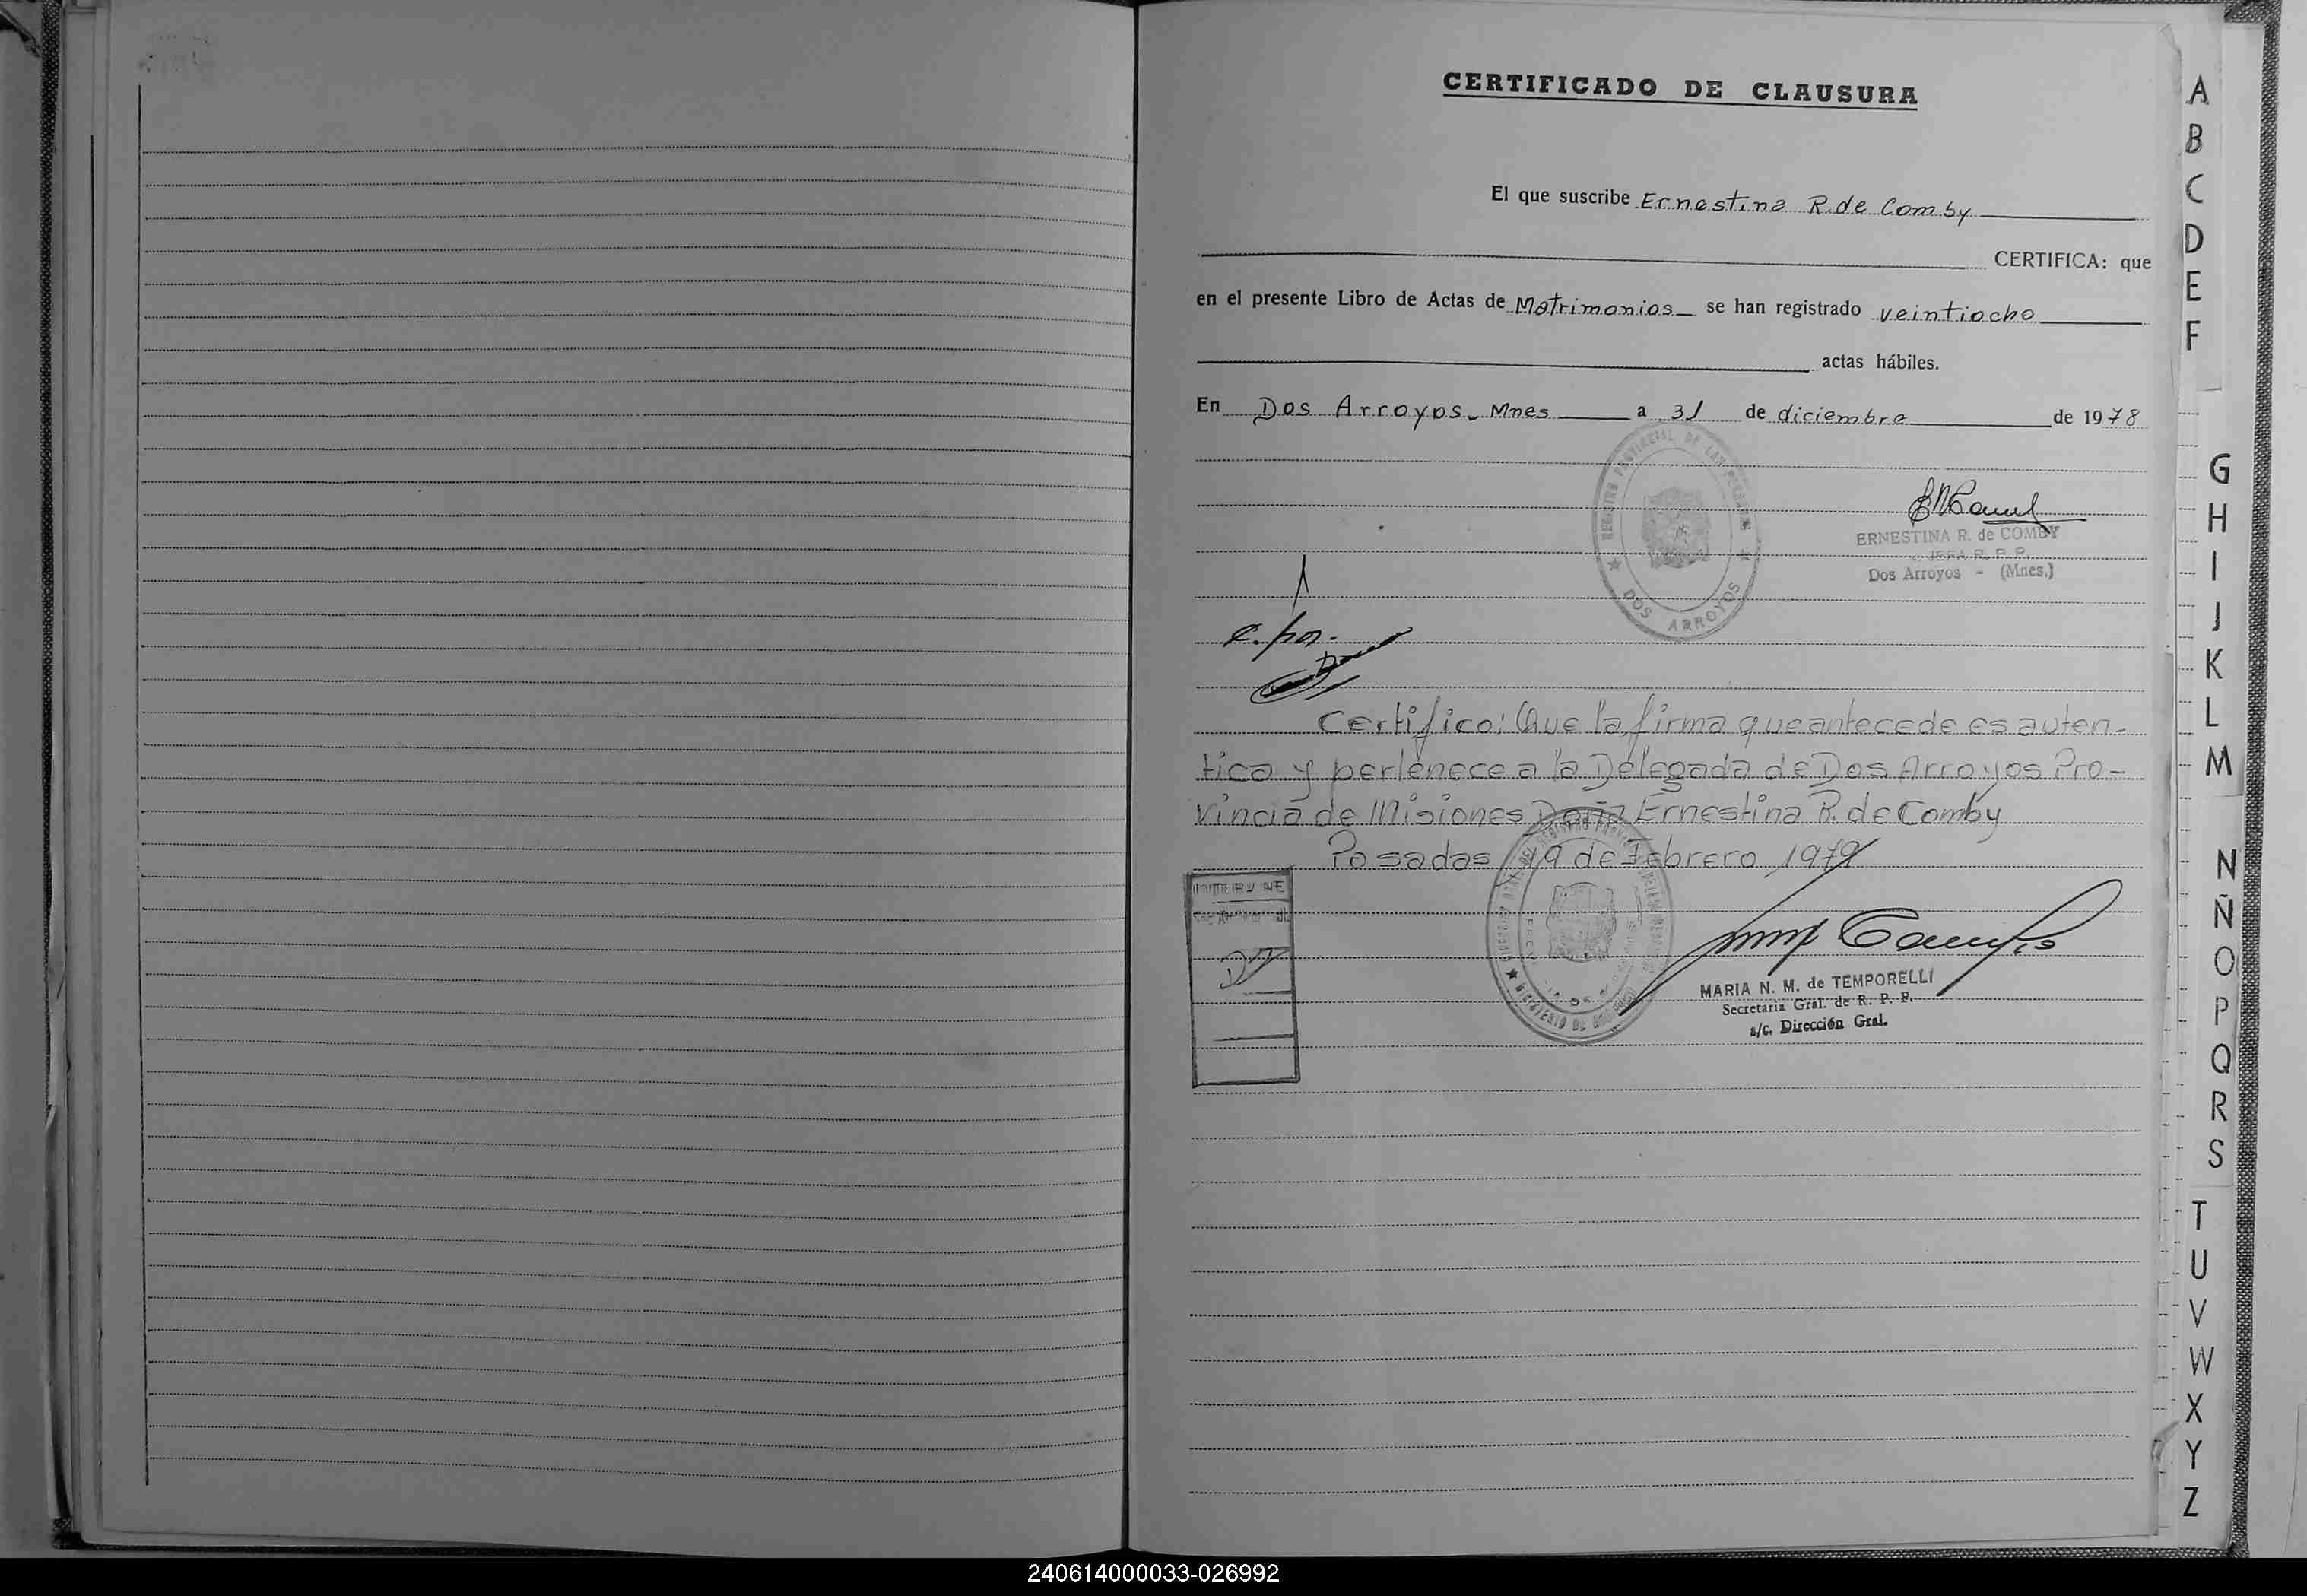 CERTIFICADO DE CLAUSURA
El que suscribe Ernestina R. de Comby
CERTIFICA: que
en el presente Libro de Actas de Matrimonios se han registrado veintiocho
actas hábiles.
En Dos Arroyos - Mnes a 31 de diciembre de 1978
REGISTRO PROVINCIAL DE LAS PERSONAS
DOS ARROYOS
ERNESTINA R. de COMBY
JEFA R. P. P.
Dos Arroyos - (Mnes.)
Certifico: Que la firma que antecede es auten-
tica y pertenece a la Delegada de Dos Arroyos Pro-
vincia de Misiones Doña Ernestina R. de Comby
Posadas, 19 de Febrero 1979
MARIA N. M. de TEMPORELLI
Secretaria Gral. de R. P. P.
a/c. Dirección Gral.
A
B
C
D
E
F
G
H
I
J
K
L
M
N
Ñ
O
P
Q
R
S
T
U
V
W
X
Y
Z
240614000033-026992